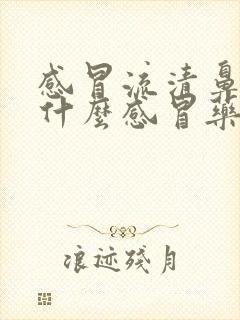 感冒流清鼻
什麼感冒藥
浪迹殘月